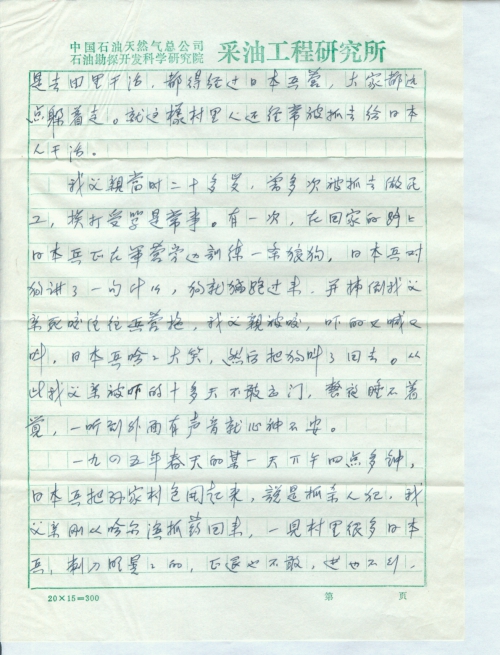 中国石油天然气总公司
石油勘探开发科学研究院 采油工程研究所
是去田里干活，都得经过日本兵营，大家都远
点躲着走。就这样村里人还经常被抓去给日本
人干活。
我父親當时二十多岁，曾多次被抓去做死
工，挨打受罵是常事。有一次，在回家的路上
日本兵正在軍营旁边訓练一条狼狗，日本兵对
狗讲了一句什么，狗就猛跑过来，并捧倒我父
亲死咬住往兵营拖，我父親被咬，吓的又喊又
叫，日本兵哈哈大笑，然后把狗叫了回去。从
此我父亲被吓的十多天不敢出门，整夜睡不着
觉，一听到外面有声音就心神不安。
一九四五年春天的某一天下午四点多钟，
日本兵把孙家村包围起来，說是抓杀人犯，我
父亲刚从哈尔滨抓药回来，一見村里很多日本
兵，刺刀明晃晃的，正退也不敢，进也不行，
20×15=300 第 页